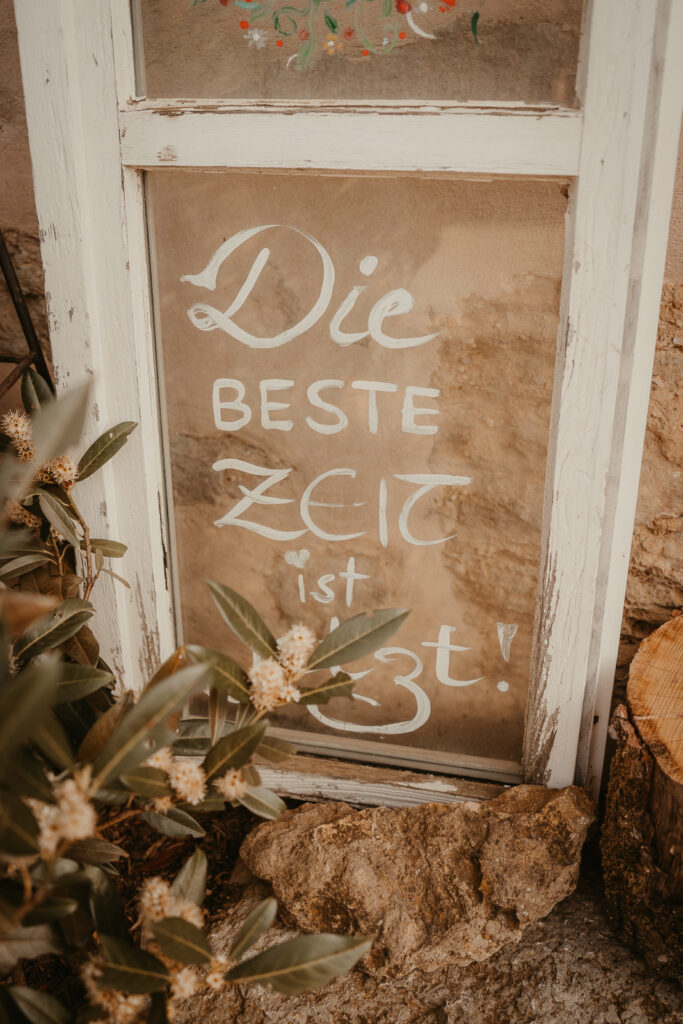 Die
BESTE
ZEIT
ist